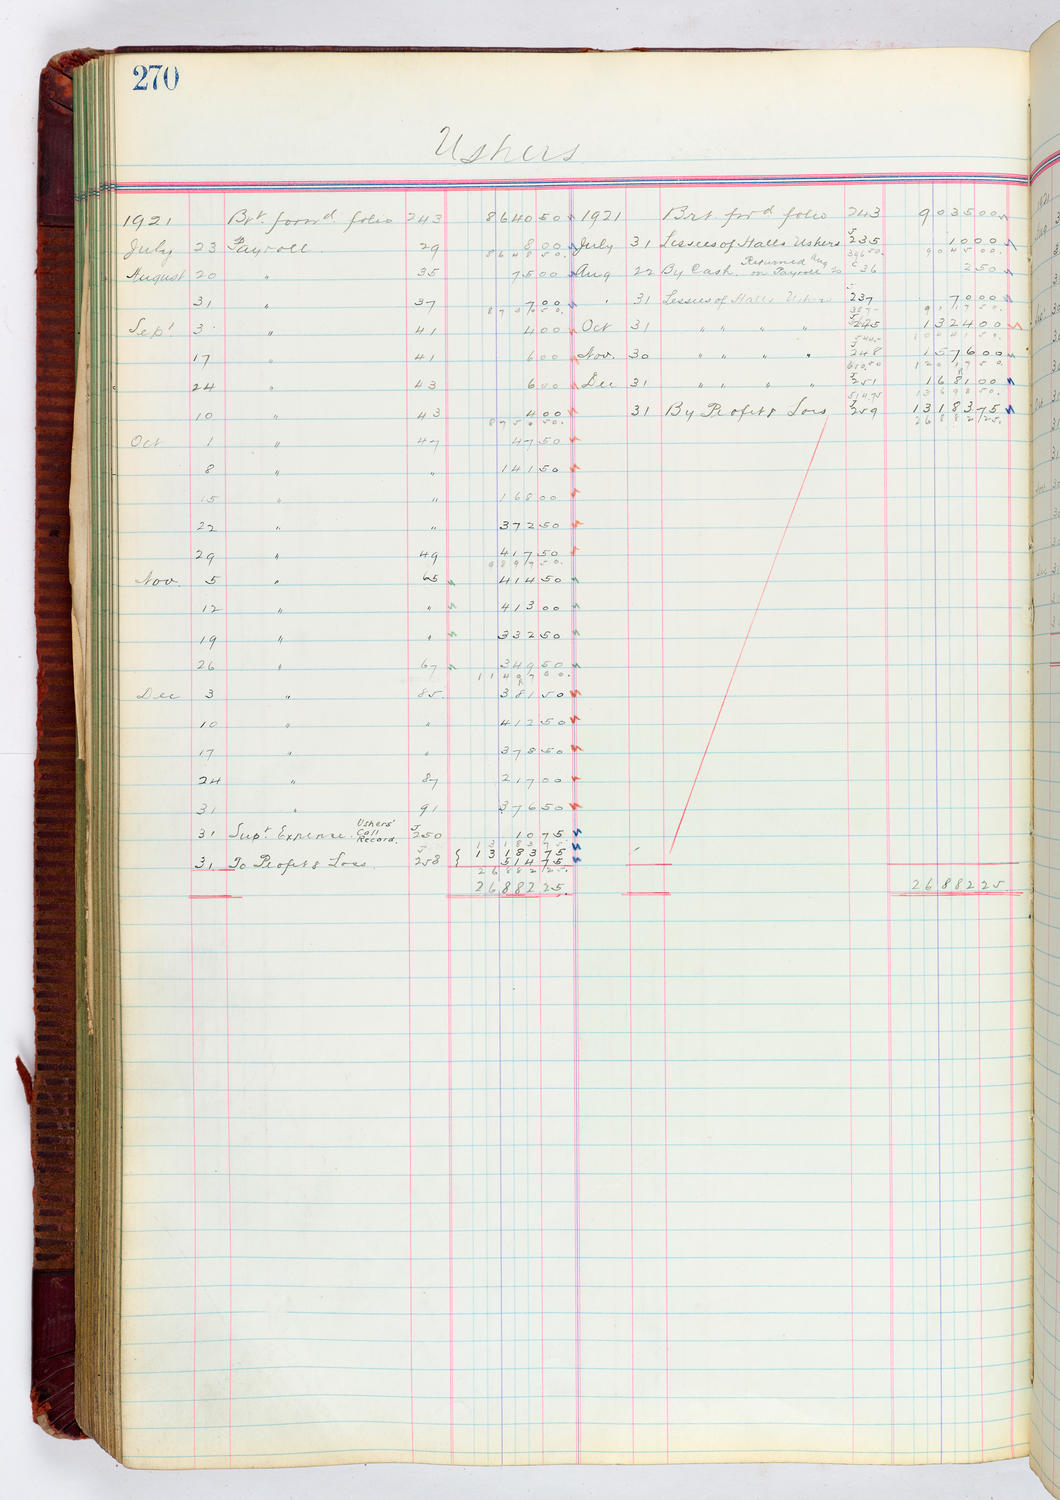 270
Ushers
1921 Brt. forw'd folio 243 8640 50
July 23 Payroll 29 8 00
8648 50.
August 20 " 35 75 00
31 " 37 7 00
Sept 3 " 41 4 00
17 " 41 6 00
24 " 43 6 00
10 " 43 4 00
8750 50.
Oct 1 " 47 47 50
8 " " 141 50
15 " " 168 00
22 " " 372 50
29 " 49 417 50
9897 50.
Nov. 5 " 65 414 50
12 " " 413 00
19 " " 332 50
26 " 67 349 50
11407 00.
Dec 3 " 85. 381 50
10 " " 412 50
17 " " 378 50
24 " 87 217 00
31 " 91 376 50
31 Supt. Expense. Ushers' Call Record. J 250 10 75
13183 75.
31 To Profit & Loss J 258 { 13183 75
514 75
26882 25.
26882 25.
1921 Brt. frw'd folio 243 9035 00
July 31 Lessees of Halls Ushers J 235 10 00
9045 00.
Aug 22 By Cash. Returned Aug 20 on Payroll C 36 2 50
" 31 Lessees of Halls Ushers J 237 70 00
9117 50.
Oct 31 " " " " J 245 1324 00
10441 50.
Nov. 30 " " " " J 248 1576 00
12017 50.
Dec 31 " " " " J 251 1681 00
13698 50.
31 By Profit & Loss J 259 13183 75
26882 25.
26882 25